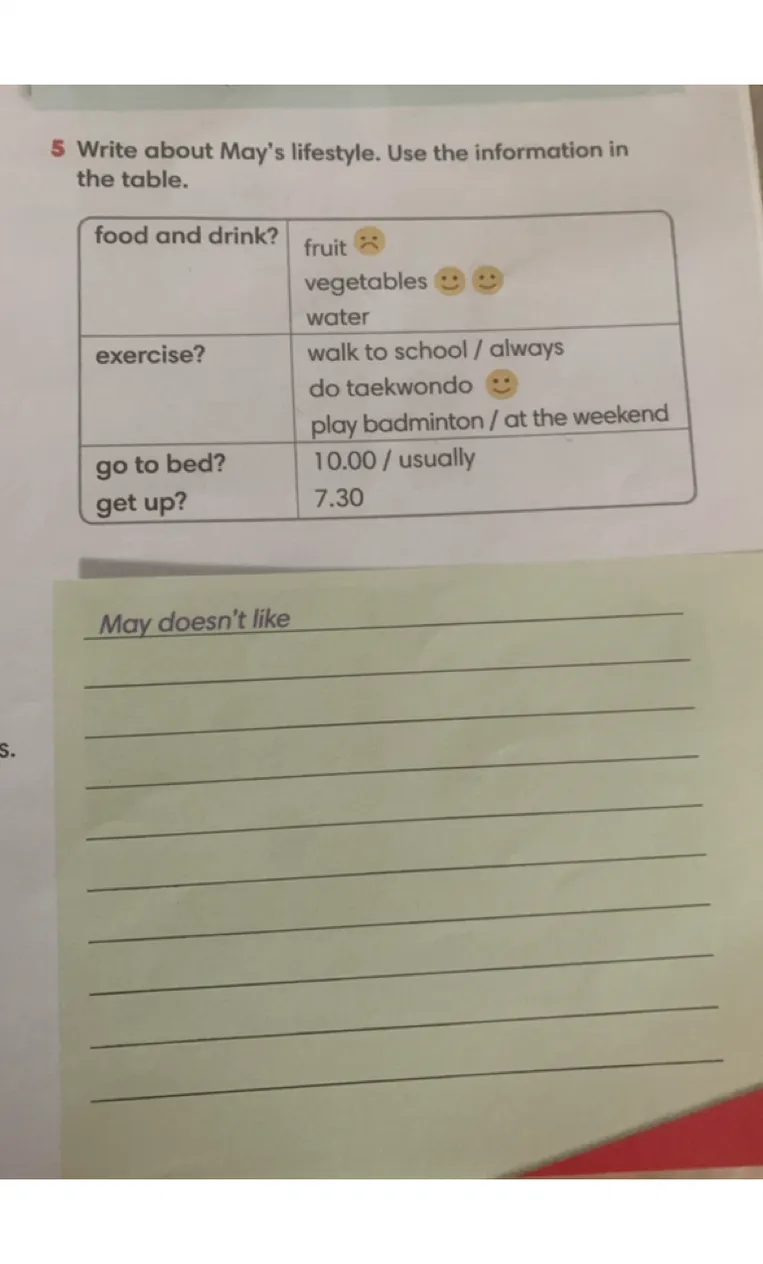 5 Write about May's lifestyle. Use the information in
the table.
food and drink?
fruit
vegetables
water
exercise?
walk to school / always
do taekwondo
play badminton / at the weekend
go to bed?
10.00 / usually
get up?
7.30
May doesn't like
s.